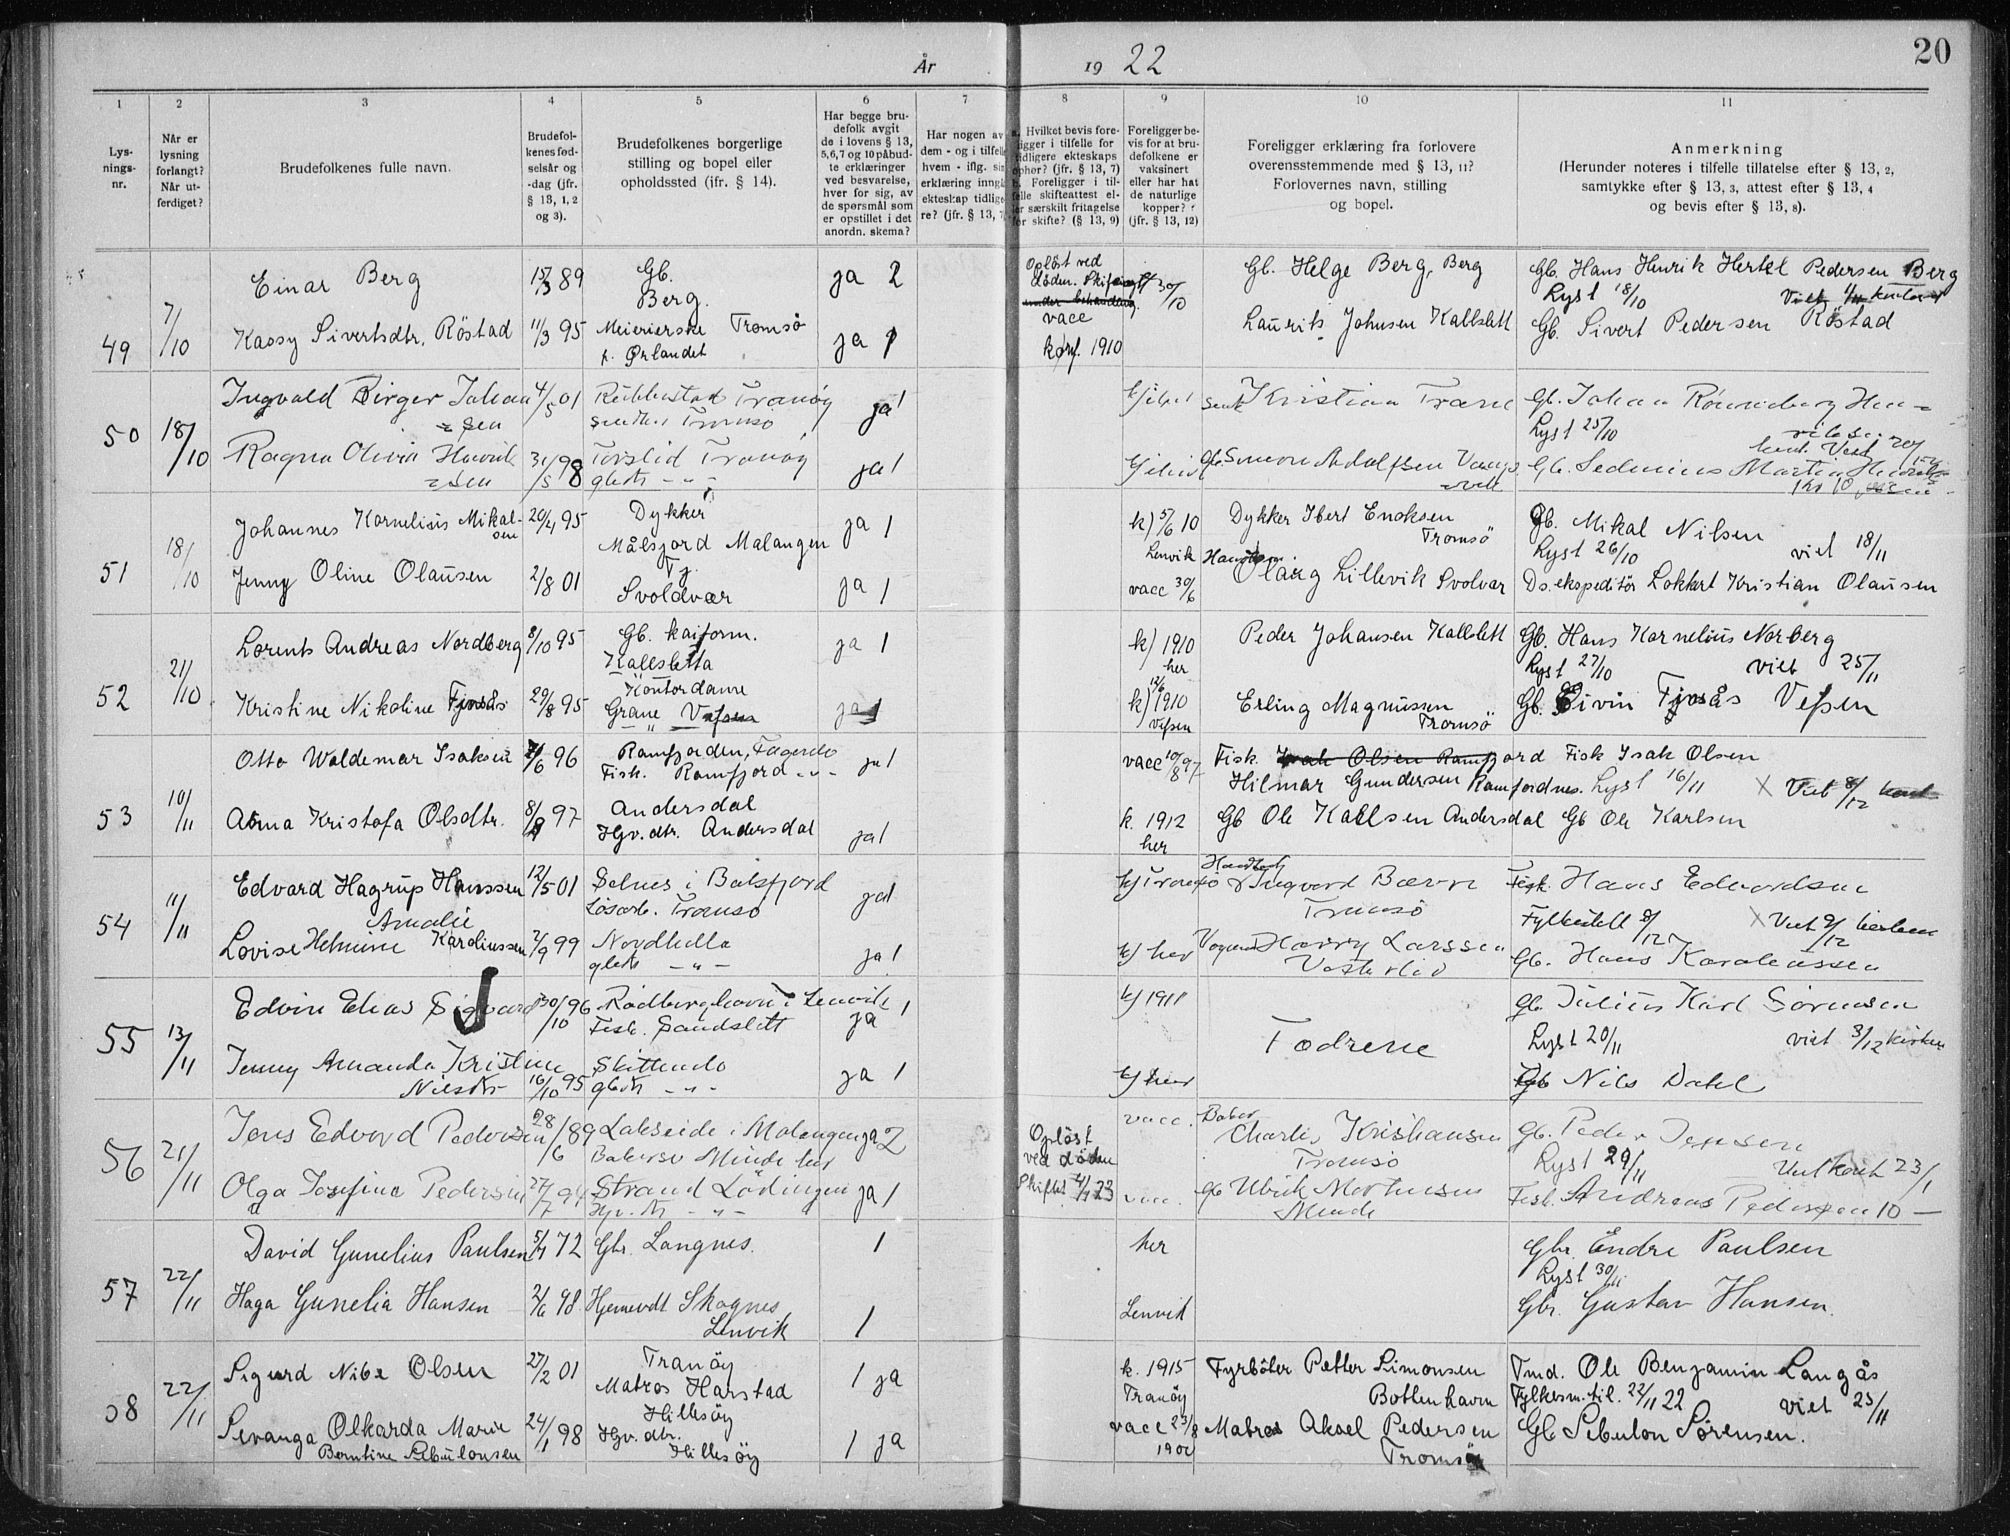 År 1922
20
1 2 3 4 5 6 7 8 9 10 11
Lys-
nings-
nr.
Når er
lysning
forlangt?
Når ut-
ferdiget?
Brudefolkenes fulle navn.
Brudefol-
kenes fød-
selsår og
-dag (jfr.
§ 13, 1, 2
og 3).
Brudefolkenes borgerlige
stilling og bopel eller
opholdssted (ifr. § 14).
Har begge bru-
defolk avgit
de i lovens § 13,
5,6,7 og 10 påbud-
te erklæringer
ved besvarelse,
hver for sig, av
de spørsmål som
er opstillet i det
anordn. skema?
Har nogen av
dem - og i tilfelle
hvem - iflg. sin
erklæring inngå
ekteskap tidlige
re? (jfr. § 13, 7
a. Hvilket bevis fore-
ligger i tilfelle for
tidligere ekteskaps
ophør? (jfr. § 13, 7)
b. Foreligger i til-
felle skifteattest el-
ler særskilt fritagelse
for skifte? (§ 13, 9)
Foreligger be-
vis for at bru-
defolkene er
vaksinert
eller har hat
de naturlige
kopper?
(jfr. § 13, 12)
Foreligger erklæring fra forlovere
overensstemmende med § 13, 11?
Forlovernes navn, stilling
og bopel.
Anmerkning
(Herunder noteres i tilfelle tillatelse efter § 13, 2,
samtykke efter § 13, 3, attest efter § 13, 4
og bevis efter § 13, 8).
49 7/10
Einar Berg 15/3 89 Gb. Berg. ja 2
Opløst ved Døden. Skifteatt 30/10
under behandling
vacc
Gb. Helge Berg, Berg
Gb. Hans Henrik Hertel Pedersen Berg
Lyst 18/10
Kassy Sivertsdtr, Röstad 11/3 95 Meierierske Tromsö
f. Ørlandet ja 1
konf. 1910
Laurits Johnsen Kallslett
Gb. Sivert Pedersen Röstad
50 18/10
Ingvald Birger Johan
=sen 4/5 01 Tranöy
Tromsö ja 1
Kristian Trane
Gb. Johan
Lyst 25/10
Ragna Olivia Henrik
=sen 31/5 98 Torslid Tranöy
gbdtr - " - ja 1
Gb. Simon Adolfsen
Gb. Sedenius Martin
Kr 10
51 18/10
Johannes Kornelius Mikal-
sen 20/4 95 Dykker
Målsjord Malangen ja 1
k) 5/6 10
Lenvik
Dykker Ibert Enoksen
Tromsö
Gb. Mikal Nilsen
Lyst 26/10 viet 18/11
Jenny Oline Olaüsen 2/8 01 Tj.
Svoldvær ja 1
vacc 30/6
Olarg Lillevik Svolvær
Ds. ekspeditör Lokkert Kristian Olaüsen
52 21/10
Lorents Andreas Nordberg 8/10 95 Gb. kaiform.
Kallsletta ja 1
k) 1910
her
Peder Johansen Kallslett
Gb. Hans Kornelius Norberg
Lyst 27/10 viet 25/11
Kristine Nikoline 29/8 95 Kontordame
Grane Vefsen ja 1
12/6
k) 1910
Vefsen
Erling Magnussen
Tromsö
Gb. Eivin Vefsen
53 10/11
Otto Waldemar Isaksen 7/6 96 Ramfjorden, Fagernes
Fisk. Ramfjord - " - ja 1
vacc 10/8 97
Fisk. Isak Olsen Ramfjord Fisk Isak Olsen
Hilmar Gundersen Ramfjordnes. Lyst 16/11 X Viet 8/12 kont
Anna Kristofa Olsdtr. 8/9 97 Andersdal
Hjv. dtr. Andersdal ja 1
k. 1912
her
Gb Ole Karlsen Andersdal Gb Ole Karlsen
54 11/11
Edvard Hagrup Hanssen 12/5 01 Selnes i Balsfjord
Løsarb. Tromsö ja 1
k) Tromsö
Ingvard
Tromsö
Fisk. Hans Edvardsen
8/12 X Viet 9/12
Amalie
Lovise Helmine Karoliussen 2/9 99 Nordkella
gbdtr - " - ja 1
k) her
Harry Larssen
Gb. Hans Karoliussen
55 13/11
Edvin Elias Sigvard 30/10 96 Rødberghavn i Lenvik
Fisk. Sandslett ja 1
k) 1911
Fædrene
Gb. Julius Karl Sørensen
Lyst 20/11 viet 3/12 kirken
Jenny Amanda Kristine
Nilsdtr 16/10 95 Skittenelv
gbdtr - " - ja 1
k) her
Gb Nils Dahl
56 21/11
Jens Edvard Pedersen 28/6 89 Lakseide i Malangen
ja 2
Opløst
ved döden
Skifteatt 4/1 23
vacc.
Baker
Charles Kristiansen
Tromsö
Gb. Peder Jensen
Lyst 29/11 Viet kont 23/1
Olga Josefine Pedersen 27/7 94 Strand Lödingen
Hjv. dtr - " - ja 1
vacc.
Gb Ulrik Mortensen
Fisk. Andreas Pedersen 10 —
57 22/11
David Gunelius Paulsen 72 Gbr. Langnes. 1
her
Gbr. Endre Paulsen
Lyst 30/11
Haga Gunelia Hansen 2/6 98 Hjemevdt Skognes
Lenvik 1
Lenvik
Gbr. Gustav Hansen.
58 22/11
Sigurd Nibe Olsen 27/2 01 Tranöy
Matros Harstad 1 ja
k. 1915
Tranöy
Fyrböter Petter Simonsen
Bottenhavn
Tmd. Ole Benjamin Langås
Fylkesm. til. 22/11 22 viet 25/11
Sevanga Olkarda Marie
Berntine Sebulonsen 24/1 98 Hillesöy
Hjv. dtr.
Hillesöy 1 ja
vacc 23/8
Matros Aksel Pedersen
Tromsö
Gb Sebulon Sørensen.